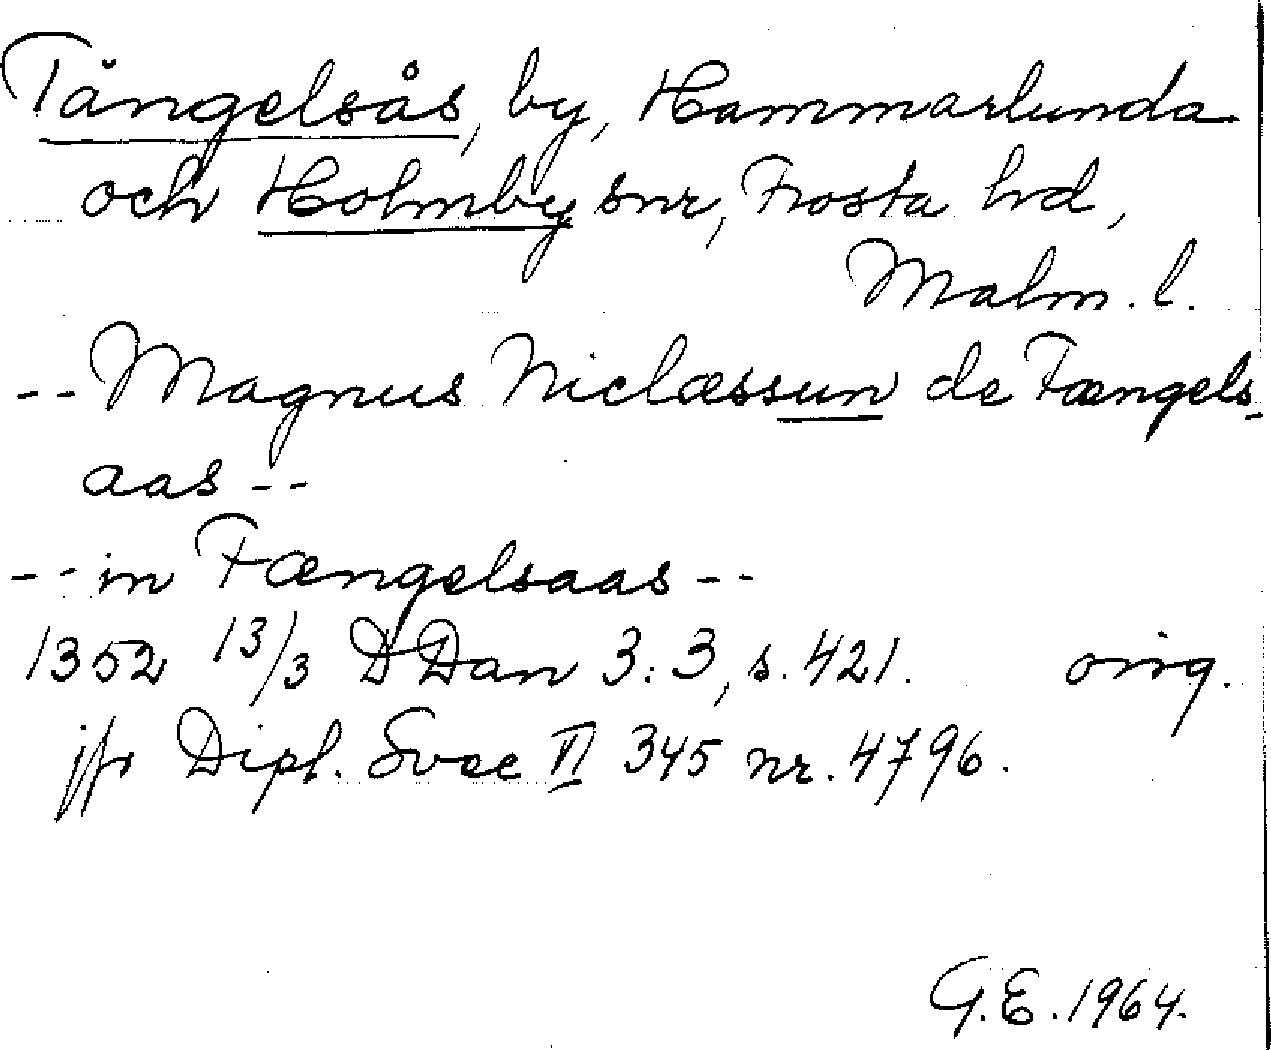 Tängelsås, by, Hammarlunda
och Holmby snr, Frosta hd,
Malm. l.
-- Magnus Niclæssun de Fængels-
aas --
-- in Fængelsaas --
1352 13/3 DDan 3:3, s. 421. orig.
jfr Dipl. Svec VI 345 nr. 4796.
G.E. 1964.